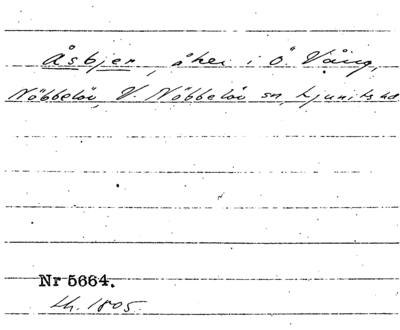 Åsbjer, åker i Ö. Vång,
Nöbbelöv, V. Nöbbelöv sn, Ljunits hd
Nr 5664.
Lh. 1805.